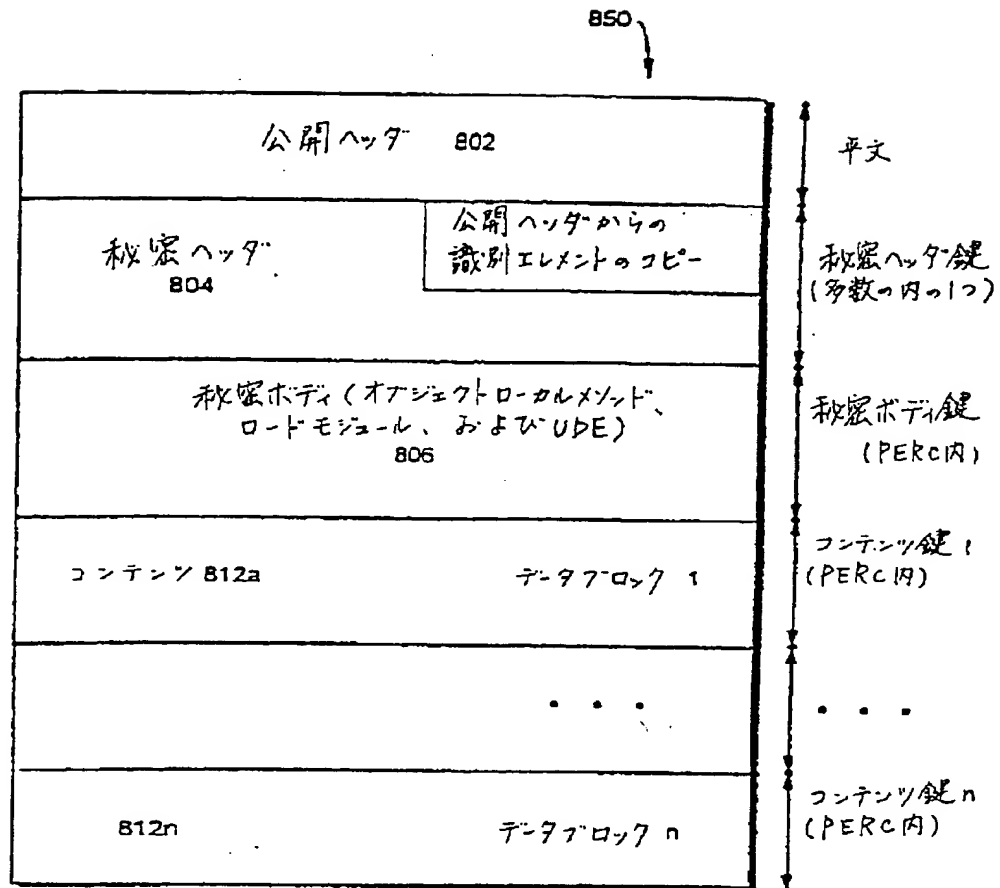 850
公開ヘッダ 802
平文
秘密ヘッダ
804
公開ヘッダからの
識別エレメントのコピー
秘密ヘッダ鍵
(多数の内の1つ)
秘密ボディ(オブジェクトローカルメソッド、
ロードモジュール、およびUDE)
806
秘密ボディ鍵
(PERC内)
コンテンツ 812a
データブロック 1
コンテンツ鍵 1
(PERC内)
• • •
• • •
812n
データブロック n
コンテンツ鍵 n
(PERC内)